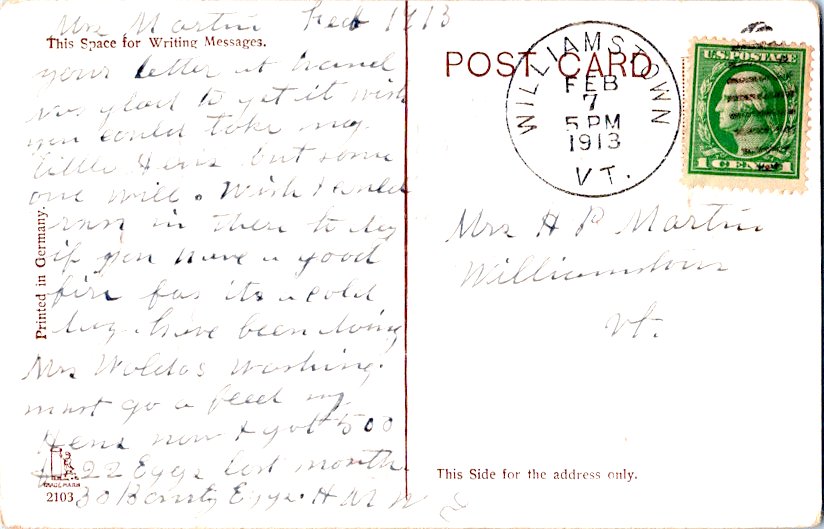 Mrs Martin Feb 1913
This Space for Writing Messages.
your letter at hand
was glad to get it wish
you could take my
little Hens but some
one will. Wish I could
run in there to day
if you have a good
fire for its a cold
day. have been doing
Mrs Waldos washing.
must go & feed my
Hens now I got 500
& 22 Eggs last month
30 Banty Eggs. H M W
Printed in Germany.
TRADE MARK
2103
POST CARD
WILLIAMSTOWN
FEB
7
5 PM
1913
VT.
U.S. POSTAGE
1 CENT 1
Mrs H P Martin
Williamstown
Vt.
This Side for the address only.